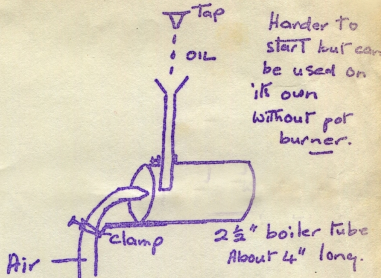 Tap
OIL
Harder to
start but can
be used on
its own
without pot
burner.
Clamp
Air
2 1/2" boiler tube
About 4" long.